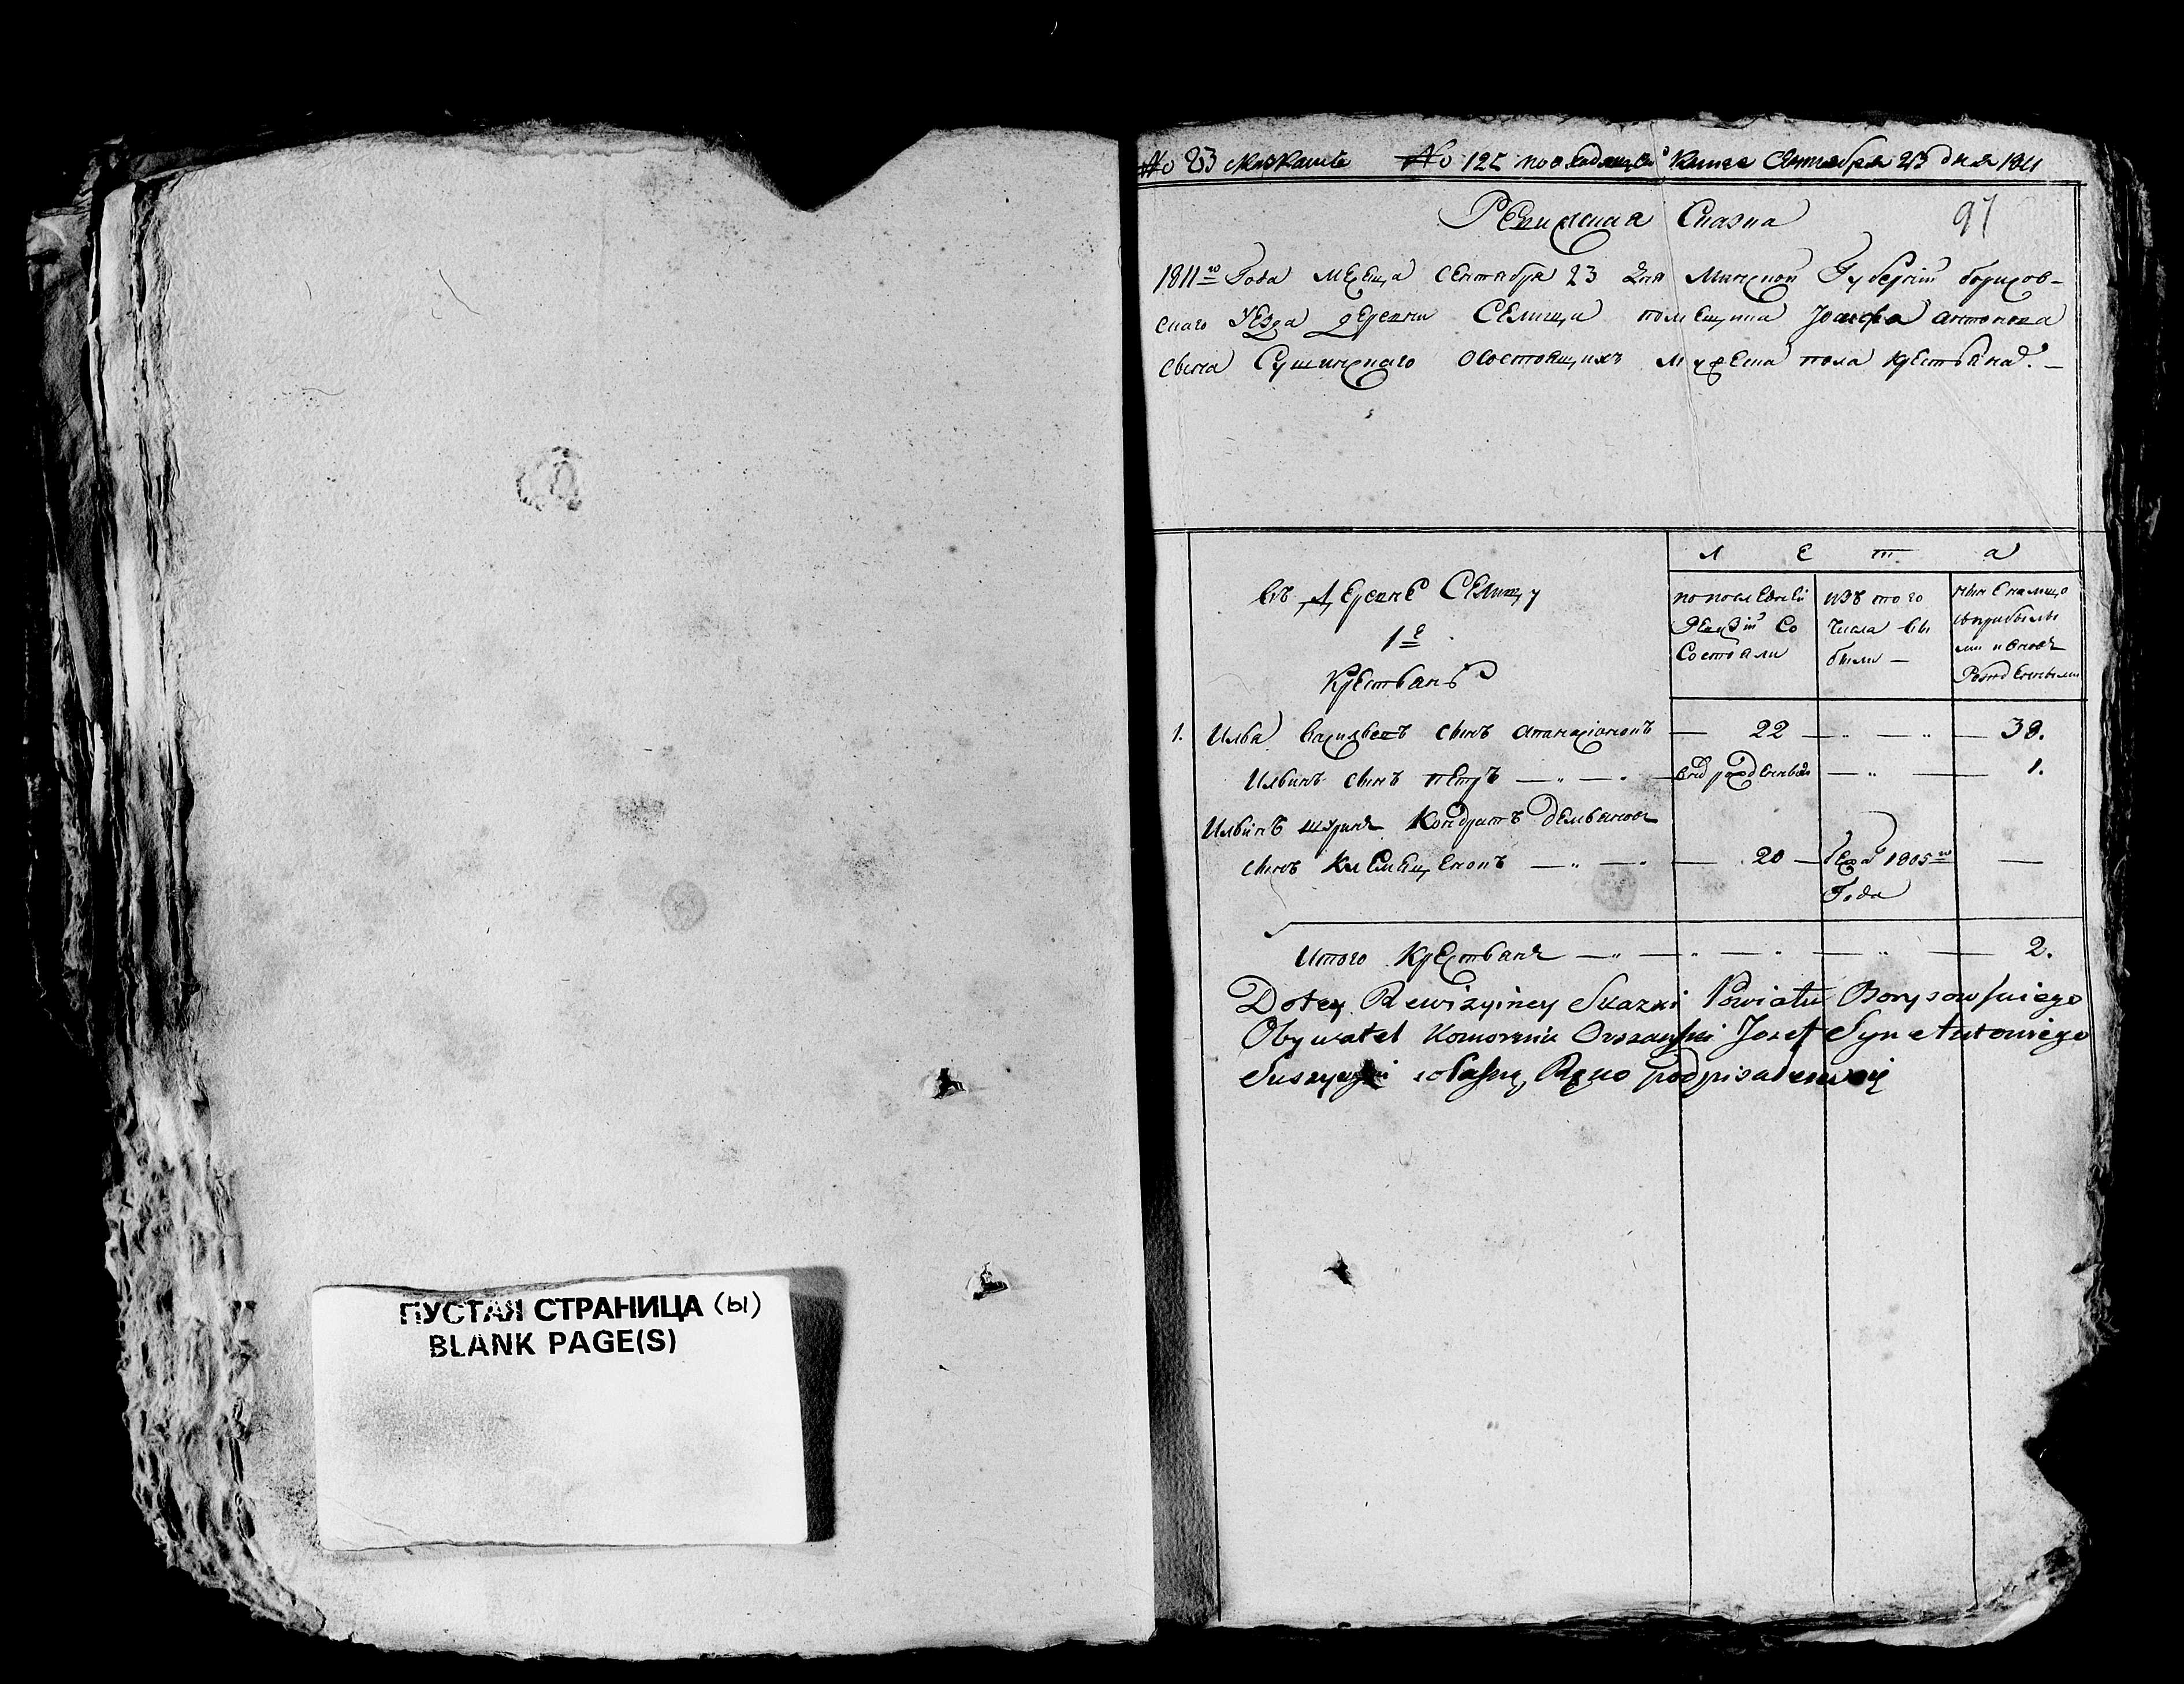 ПУСТАЯ СТРАНИЦА (ы)
BLANK PAGE(S)
No 23 No 125 по входящей Книге Сентября 23 дня 1811
97
Ревижская Сказка
1811го Года месеца Сентября 23 дня Минской Губернiи борисов-
скаго уезда деревни Селища помещика Iосифа антонова
сына Сущинскаго осостоящихъ мужеска пола крестьянаъ. —
въ деревне Селищу
1е
Крестьянъ
Л е т а
по последней Ревизiи Со Состояли
изъ того числа вы были —
ныне налицо съ прибылы ми и вновъ Рожденными
1. Илья васильевъ сынъ — 22 — „ — „ — 38.
Ильинъ сынъ петръ — „ — „ — вновърожденный — „ — 1.
Ильинъ шуринъ Кондратъ демьяновъ
сынъ Клемещеновъ — „ — „ — 20 — бежа 1805го —
Года
Итого Крестьянъ — „ — „ — „ — „ — 2.
Do tey Rewizyiney Skazki Powiatu Borysowskiego
Obywatel Komornik Orszanski Jozef Syn Antoniego
Suszynski własną Ręką podpisałem się